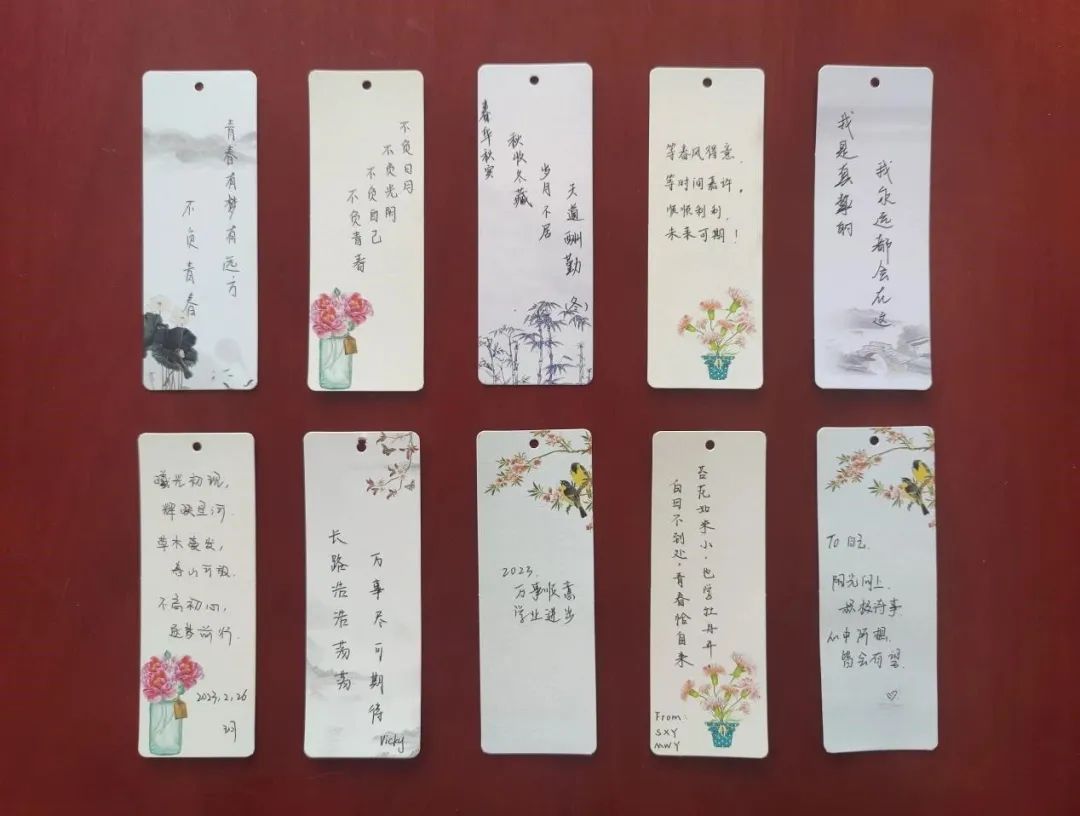 青春有梦有远方
不负青春
不负日月
不负光阴
不负自己
不负青春
春华秋实
秋收冬藏
岁月不居
天道酬勤
等春风得意,
等时间嘉许。
顺顺利利,
未来可期!
我是真挚的
我永远都会在这
曦光初现,
辉映星河.
草木蔓发,
春山可望.
不忘初心,
逐梦前行.
2023.2.26
长路浩浩荡荡
万事尽可期待
Vicky
2023.
万事顺意
学业进步
苔花如米小,也学牡丹开
白日不到处,青春恰自来
From:
SXY
MWY
To 自己
阳光向上
积极待事
心中所想
皆会有望.
♡